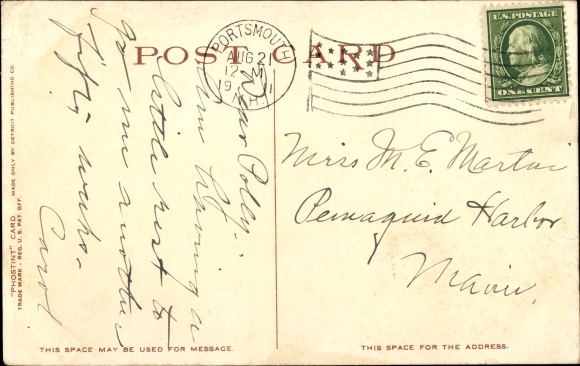 POST CARD
PORTSMOUTH
AUG 21
12 M
N.H.
U.S. POSTAGE
ONE CENT
Dear Polly.
Am having a
little rest to
go me another
fifty weeks.
Carol
Miss M. E. Martin
Pemaquid Harbor
Maine.
"PHOSTINT" CARD
MADE ONLY BY DETROIT PUBLISHING CO.
TRADE MARK - REG. U.S. PAT. OFF.
THIS SPACE MAY BE USED FOR MESSAGE.
THIS SPACE FOR THE ADDRESS.